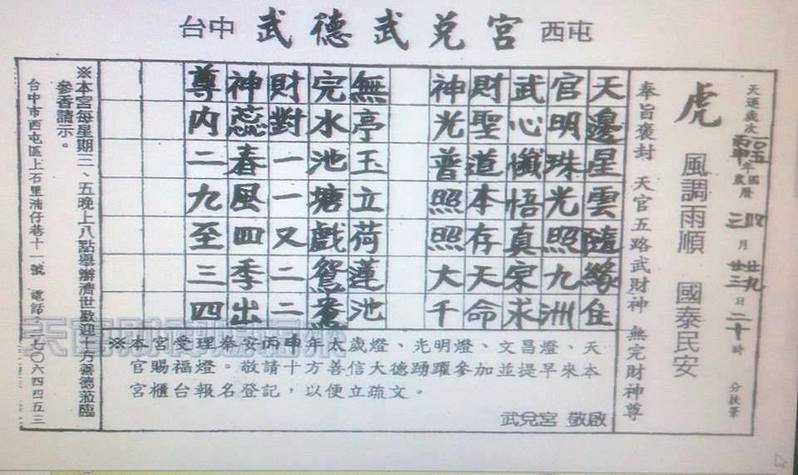 台中 武德武兌宮 西屯
天運歲次一〇五丙申年
月 日二十時 分扶筆
虎 風調雨順 國泰民安
奉旨褒封 天官五路武財神 無完財神尊
天邊星雲隨緣住
官明珠光照九洲
武心懺悟真宗求
財聖道本存天命
神光普照照大千
無亭玉立荷蓮池
完水池塘戲鴛鴦
財對一一又二二
神蕊春風四季出
尊內二九至三四
※本宮受理奉安丙申年太歲燈、光明燈、文昌燈、天
官賜福燈。敬請十方善信大德踴躍參加並提早來本
宮櫃台報名登記,以便立疏文。
武兌宮 敬啟
※本宮每星期三、五晚上八點舉辦濟世歡迎十方善德蒞臨
參香請示。
台中市西屯區上石里湳仔巷十一號 電話:二七〇六四四五三